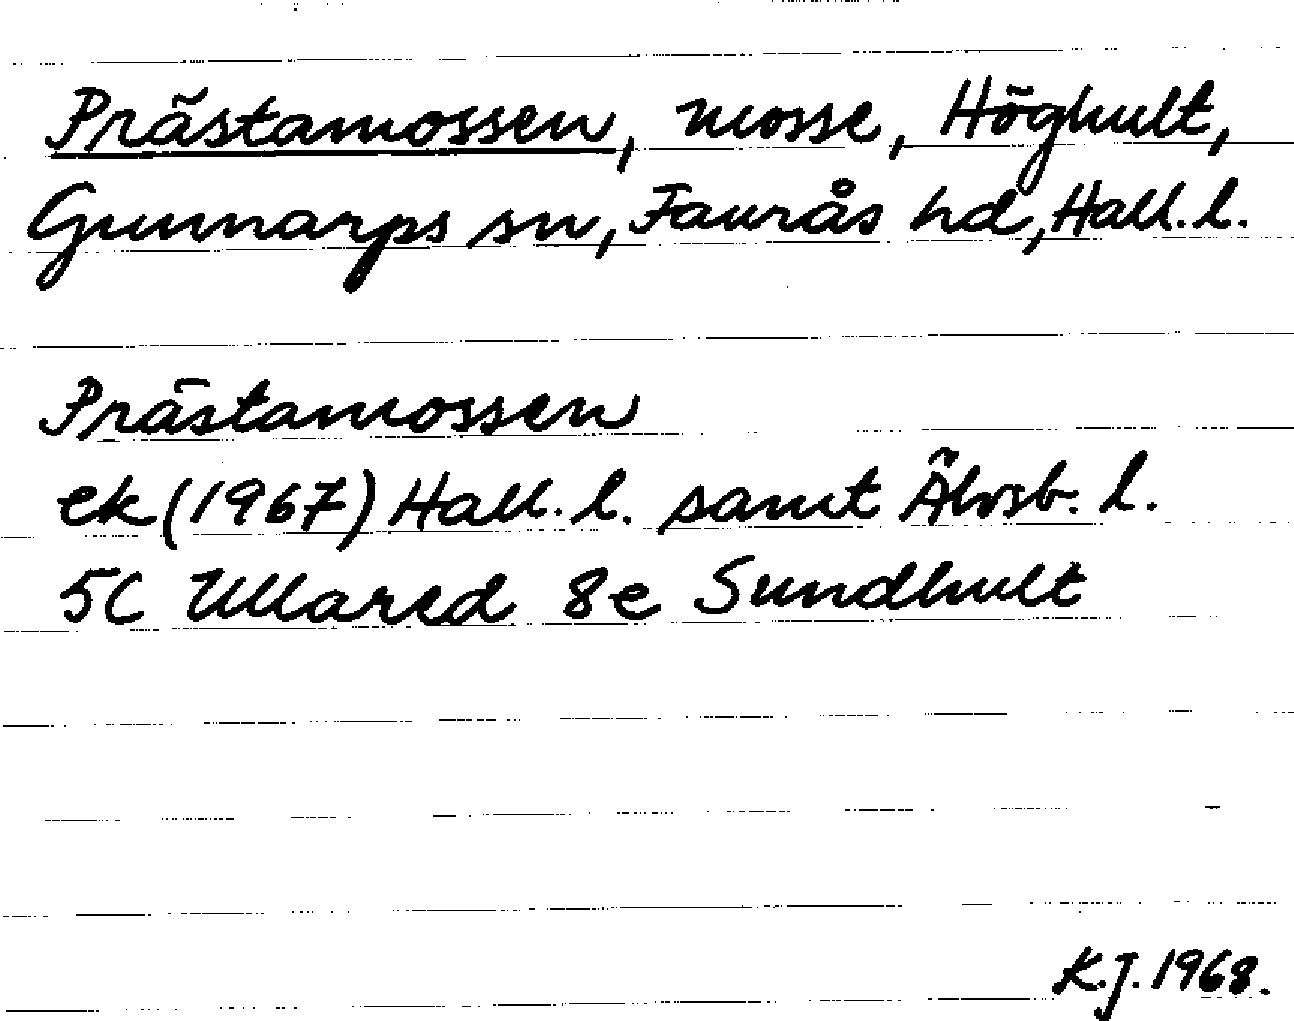 Prästamossen, mosse, Höghult,
Gunnarps sn, Faurås hd, Hall. l.
Prästamossen
ek (1967) Hall. l. samt Älvsb. l.
5C Ullared 8e Sundhult
K.J. 1968.